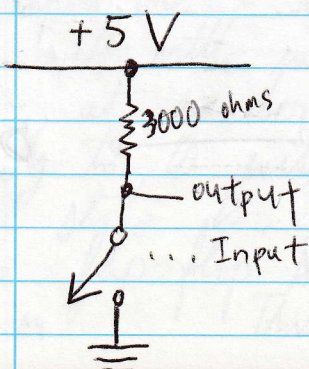 +5 V
3000 ohms
output
... Input